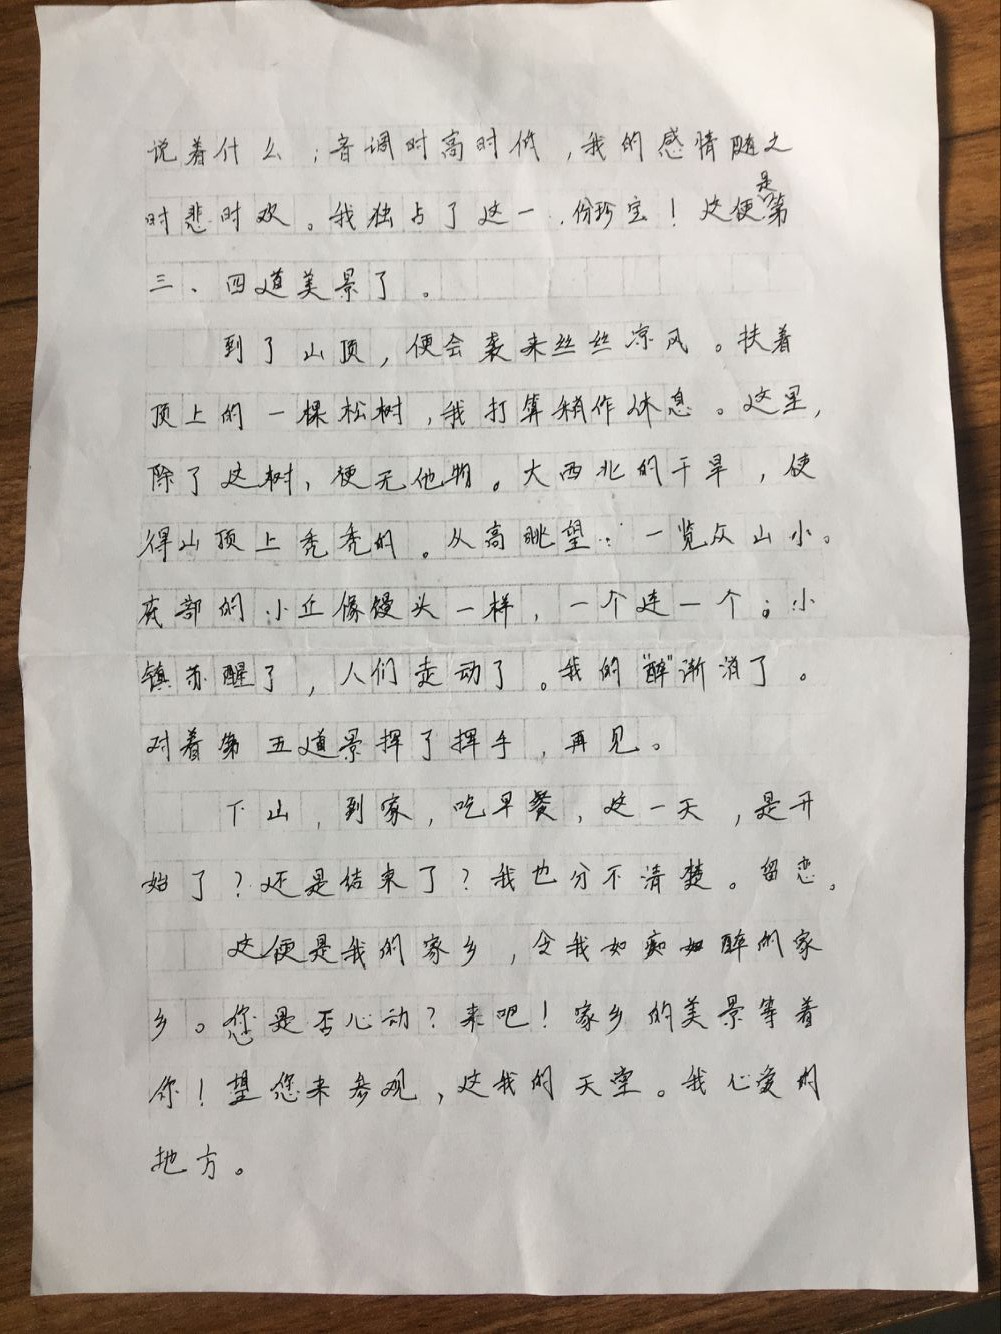 说着什么；音调时高时低，我的感情随之
时悲时欢。我独占了这一份珍宝！这便是第
三、四道美景了。
到了山顶，便会袭来丝丝凉风。扶着
顶上的一棵松树，我打算稍作休息。这里，
除了这树，便无他物。大西北的干旱，使
得山顶上秃秃的。从高眺望：一览众山小。
底部的小丘像馒头一样，一个连一个；小
镇苏醒了，人们走动了。我的“醉”渐消了。
对着第五道景挥了挥手，再见。
下山，到家，吃早餐，这一天，是开
始了？还是结束了？我也分不清楚。留恋。
这便是我的家乡，令我如痴如醉的家
乡。您是否心动？来吧！家乡的美景等着
你！望您来参观，这我的天堂。我心爱的
地方。